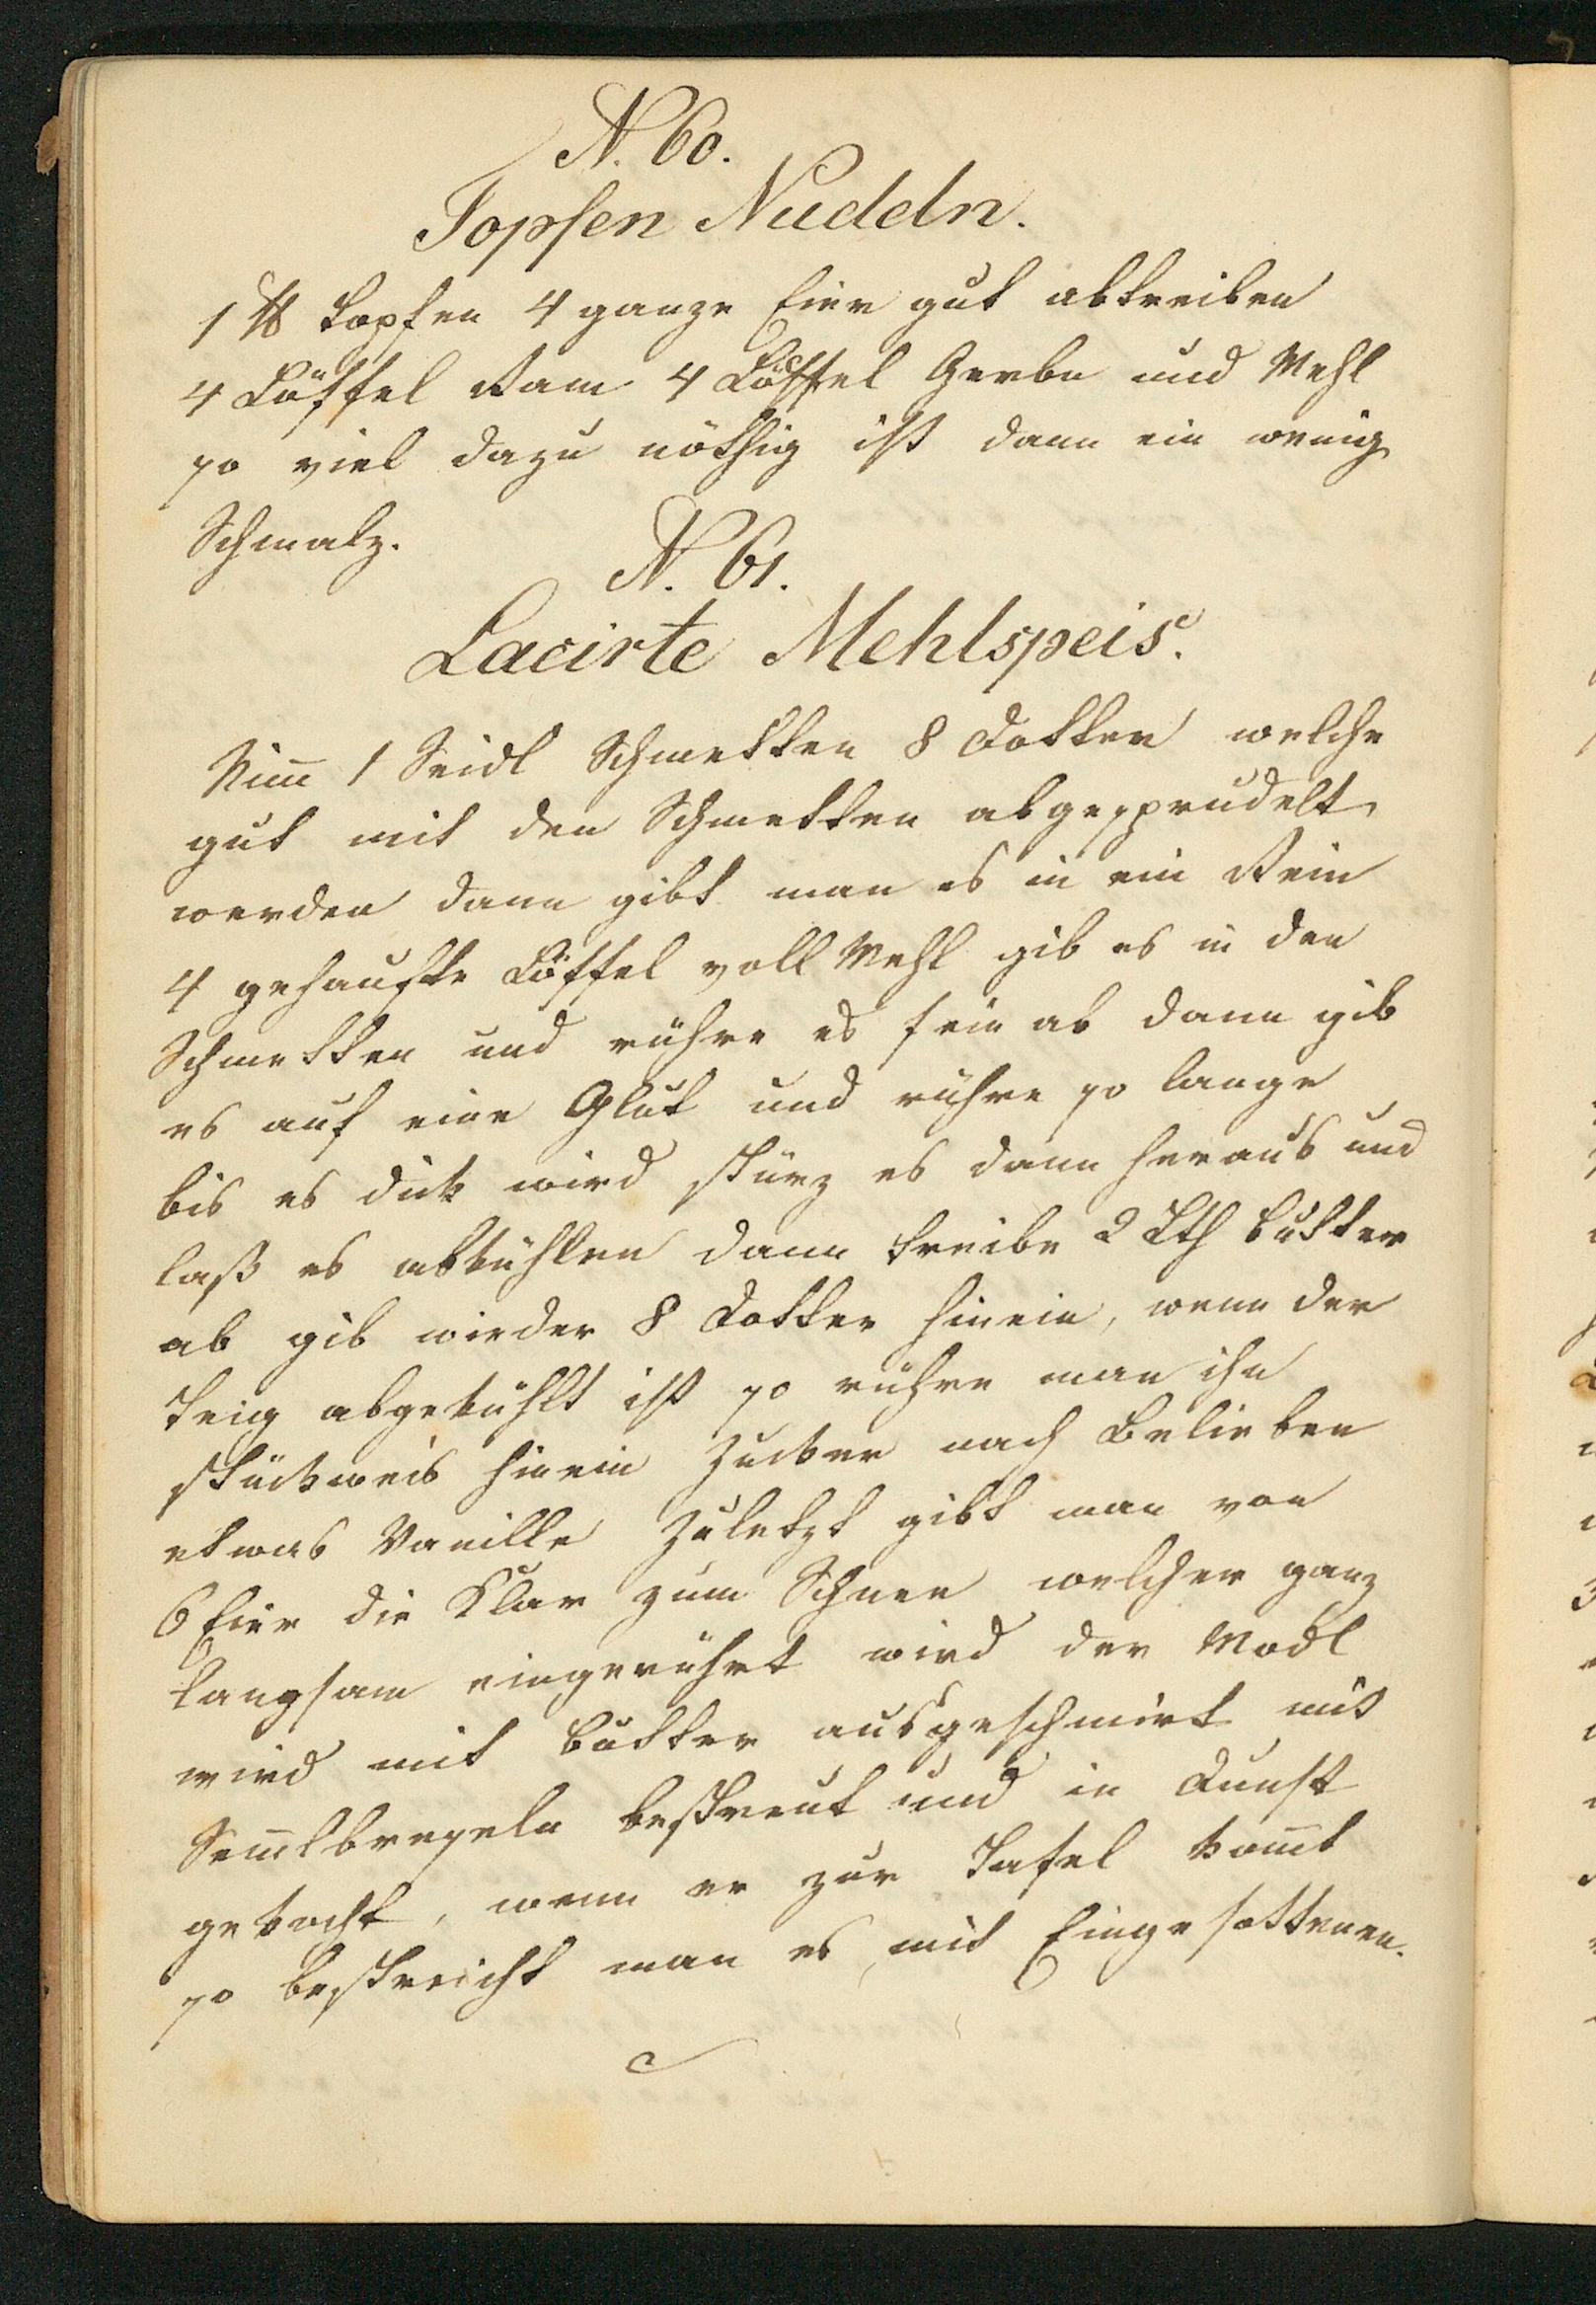 N. 60.
Topfen Nudeln.
1 ℔ Topfen 4 ganze Eier gut abtreiben
4 Löffel Ram 4 Löffel Gerbn und Mehl
so viel dazu nöthig ist dann ein wenig
Schmalz.
N. 61.
Lacirte Mehlspeis.
Nim̄ 1 Seidl Schmetten 8 Dotter welche
gut mit den Schmetten abgesprudelt
werden dann gibt man es in ein Rein
4 gehaufte Löffel voll Mehl gib es in den
Schmetten und rühre es fein ab dann gib
es auf eine Glut und rühre so lange
bis es dick wird stürz es dann heraus und
laß es abkühlen dann treibe 2 Lth butter
ab gib wieder 8 Dotter hinein, wenn der
Teig abgekühlt ist so rühre man ihn
stückweis hinein Zucker nach Belieben
etwas Vanille Zuletzt gibt man von
6 Eier die Klar zum Schnee welcher ganz
langsam eingerührt wird der Modl
wird mit butter ausgeschmirt mit
Sem̄lbreseln bestreut und in Dunst
gekocht, wenn er zur Tafel kom̄t
so bestreicht man es mit Eingesottenen.